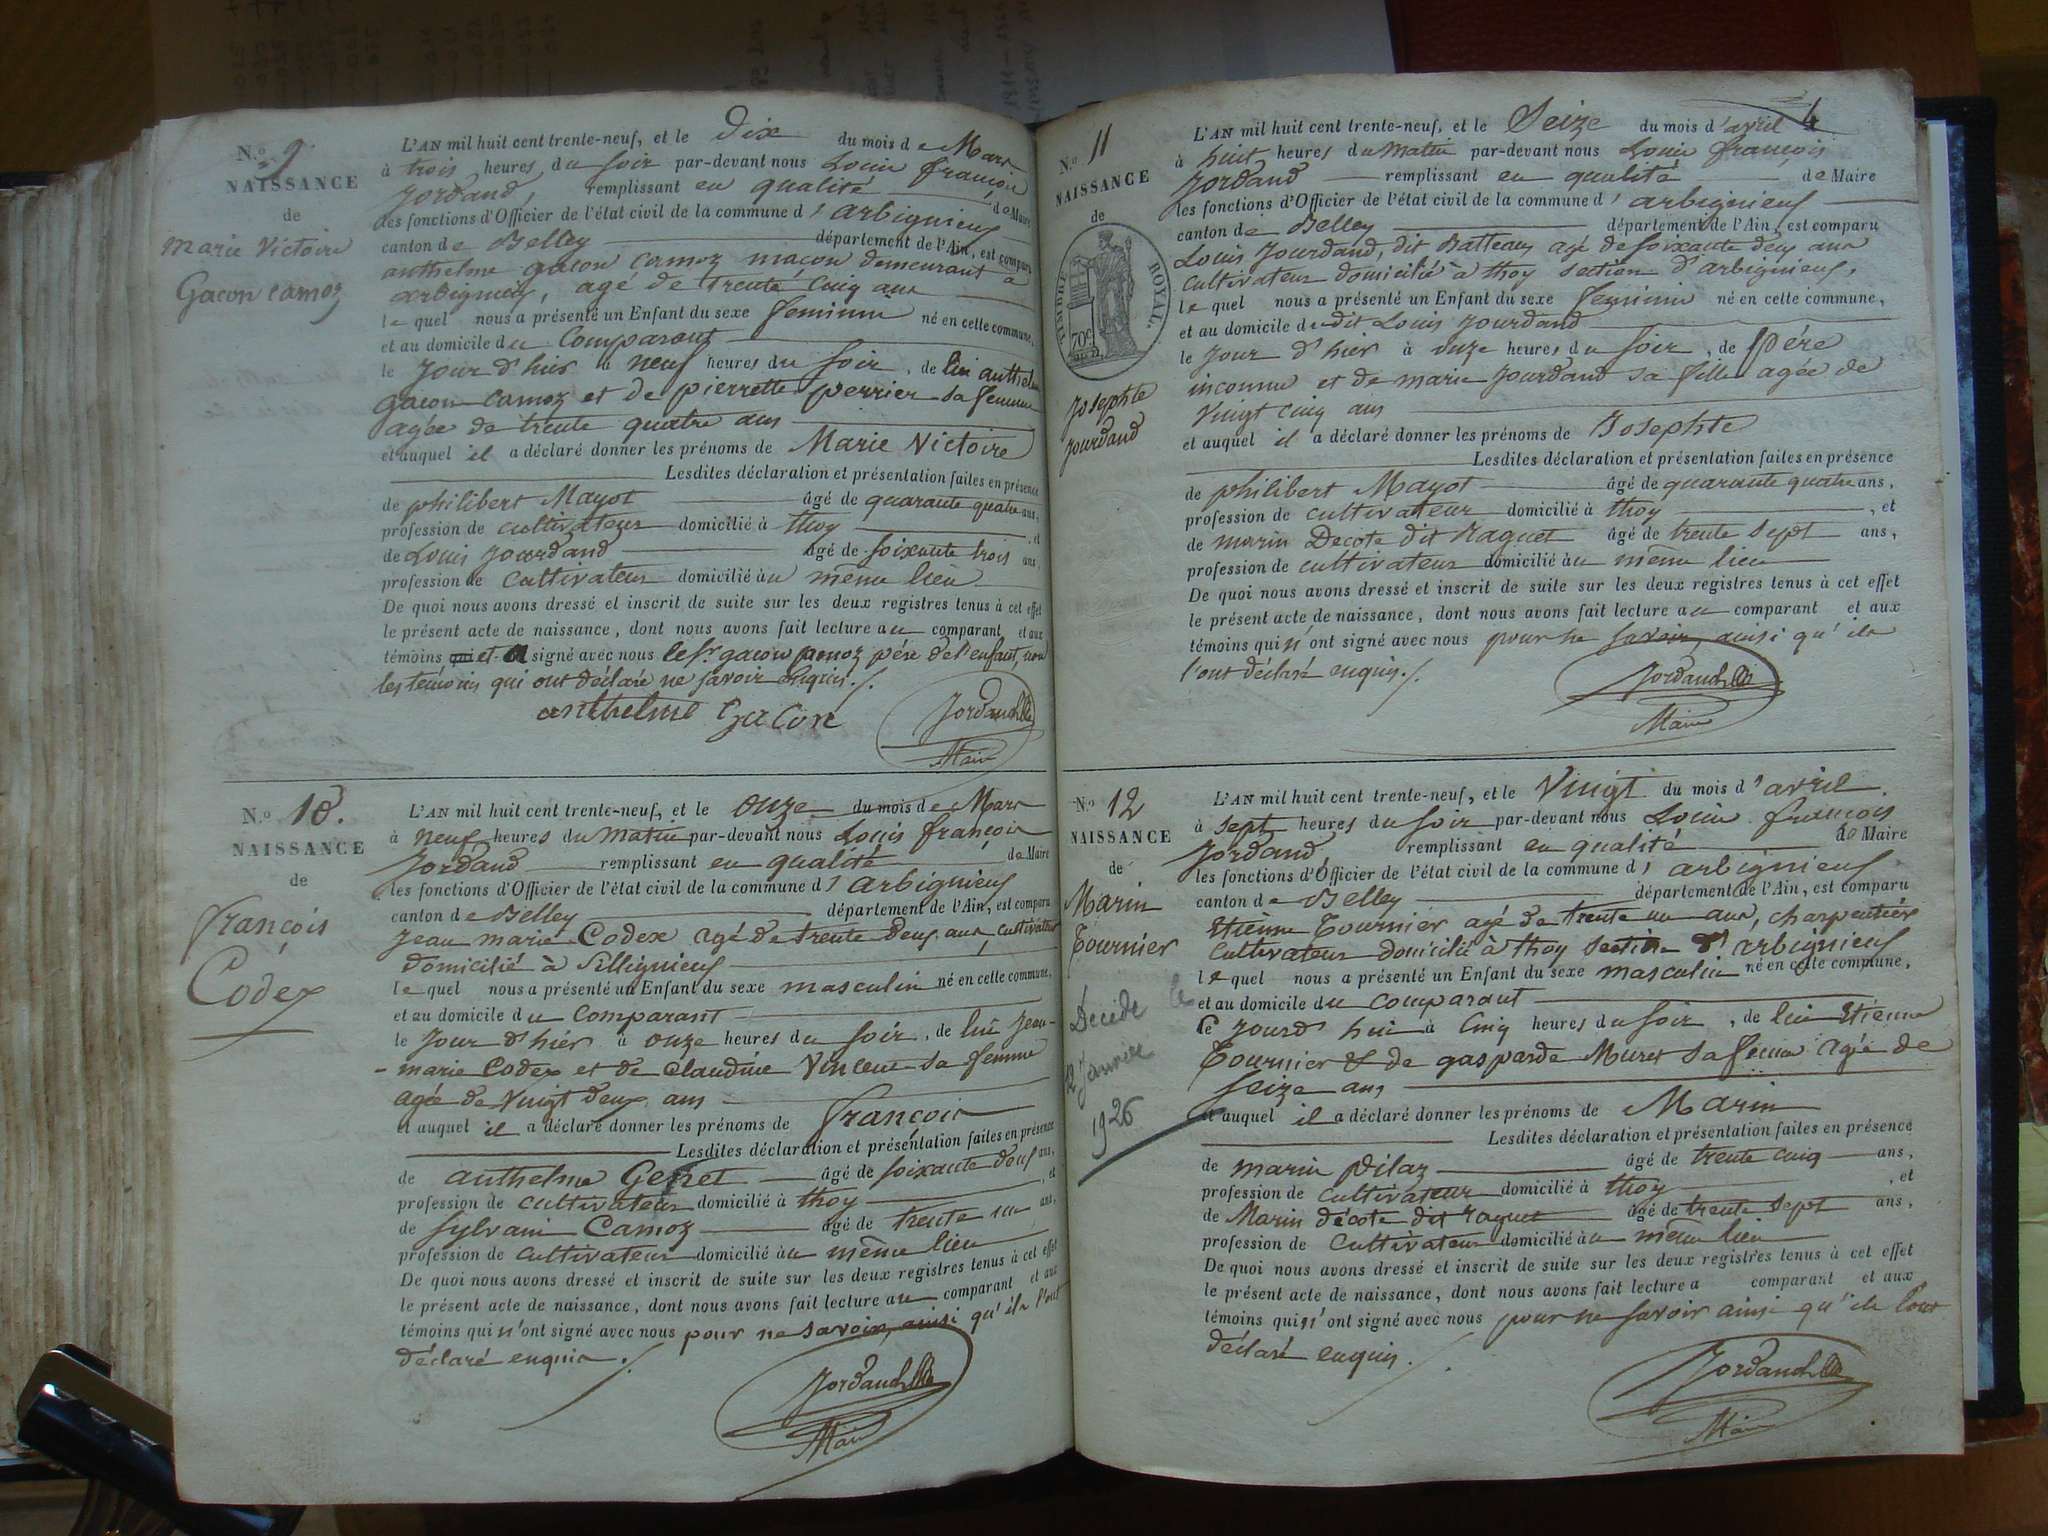 N.º 9.
NAISSANCE
de
Marie Victoire
Gacon Camoz
L'AN mil huit cent trente-neuf, et le Dix du mois de Mars
à trois heures du soir par-devant nous Louis françois
Jordand, remplissant en qualité de Maire
les fonctions d'Officier de l'état civil de la commune d'arbignieux
canton de Belley département de l'Ain, est comparu
anthelme gacon Camoz maçon demeurant à
arbignieux, agé de trente cinq ans
le quel nous a présenté un Enfant du sexe feminin né en cette commune,
et au domicile du Comparant
le jour d'hier à neuf heures du soir, de lui anthelme
gacon Camoz et de pierrette perrier sa femme
agée de trente quatre ans
et auquel il a déclaré donner les prénoms de Marie Victoire
Lesdites déclaration et présentation faites en présence
de philibert Mayot âgé de quarante quatre ans,
profession de cultivateur domicilié à thoy, et
de Louis Jourdand âgé de soixante trois ans,
profession de cultivateur domicilié au même lieu
De quoi nous avons dressé et inscrit de suite sur les deux registres tenus à cet effet
le présent acte de naissance, dont nous avons fait lecture au comparant et aux
témoins qui et a signé avec nous le sr gacon camoz père de l'enfant, non
les temoins qui ont déclaré ne savoir enquis ./.
anthelme Gacon
Jordand
Maire
N.º 10.
NAISSANCE
de
François
Codex
L'AN mil huit cent trente-neuf, et le onze du mois de Mars
à neuf heures du matin par-devant nous Louis françois
Jordand remplissant en qualité de Maire
les fonctions d'Officier de l'état civil de la commune d'arbignieux
canton de Belley département de l'Ain, est comparu
Jean marie Codex agé de trente deux ans, cultivateur
domicilié à Sillignieux
le quel nous a présenté un Enfant du sexe masculin né en cette commune,
et au domicile du Comparant
le jour d'hier à onze heures du soir, de lui Jean-
-marie Codex et de Claudine Vincent sa femme
agée de vingt deux ans
et auquel il a déclaré donner les prénoms de françois
Lesdites déclaration et présentation faites en présence
de anthelme Genet âgé de soixante deux ans,
profession de cultivateur domicilié à thoy, et
de Sylvain Camoz âgé de trente un ans,
profession de cultivateur domicilié au même lieu
De quoi nous avons dressé et inscrit de suite sur les deux registres tenus à cet effet
le présent acte de naissance, dont nous avons fait lecture au comparant et aux
témoins qui n'ont signé avec nous pour ne savoir, ainsi qu'ils l'ont
déclaré enquis ./.
Jordand
Maire
4
N.º 11
NAISSANCE
de
TIMBRE ROYAL.
70c
Josephte
Jourdand
L'AN mil huit cent trente-neuf, et le Seize du mois d'avril
à huit heures du matin par-devant nous Louis françois
Jordand remplissant en qualité de Maire
les fonctions d'Officier de l'état civil de la commune d'arbignieux
canton de Belley département de l'Ain, est comparu
Louis Jourdand, dit Batteau agé de soixante deux ans
cultivateur domicilié à thoy section d'arbignieux,
le quel nous a présenté un Enfant du sexe feminin né en cette commune,
et au domicile dudit Louis Jourdand
le jour d'hier à onze heures du soir, de père
inconnu et de marie Jourdand sa fille agée de
vingt cinq ans
et auquel il a déclaré donner les prénoms de Josephte
Lesdites déclaration et présentation faites en présence
de philibert Mayot âgé de quarante quatre ans,
profession de cultivateur domicilié à thoy, et
de marin Decote dit Raquet âgé de trente sept ans,
profession de cultivateur domicilié au même lieu
De quoi nous avons dressé et inscrit de suite sur les deux registres tenus à cet effet
le présent acte de naissance, dont nous avons fait lecture au comparant et aux
témoins qui n'ont signé avec nous pour ne savoir, ainsi qu'ils
l'ont déclaré enquis ./.
Jordand
Maire
N.º 12
NAISSANCE
de
Marin
Tournier
Décédé le
12 janvier
1926
L'AN mil huit cent trente-neuf, et le Vingt du mois d'avril
à sept heures du soir par-devant nous Louis françois
Jordand, remplissant en qualité de Maire
les fonctions d'Officier de l'état civil de la commune d'arbignieux
canton de Belley département de l'Ain, est comparu
Etienne Tournier agé de trente un ans, charpentier
cultivateur domicilié à thoy section d'arbignieux
le quel nous a présenté un Enfant du sexe masculin né en cette commune,
et au domicile du comparant
le jourd'hui à cinq heures du soir, de lui Etienne
Tournier & de gasparde Muret sa femme agée de
seize ans
et auquel il a déclaré donner les prénoms de Marin
Lesdites déclaration et présentation faites en présence
de marin Pilaz âgé de trente cinq ans,
profession de cultivateur domicilié à thoy, et
de Marin décote dit raquet âgé de trente sept ans,
profession de cultivateur domicilié au même lieu
De quoi nous avons dressé et inscrit de suite sur les deux registres tenus à cet effet
le présent acte de naissance, dont nous avons fait lecture a comparant et aux
témoins qui n'ont signé avec nous pour ne savoir ainsi qu'ils l'ont
déclaré enquis ./.
Jordand
Maire